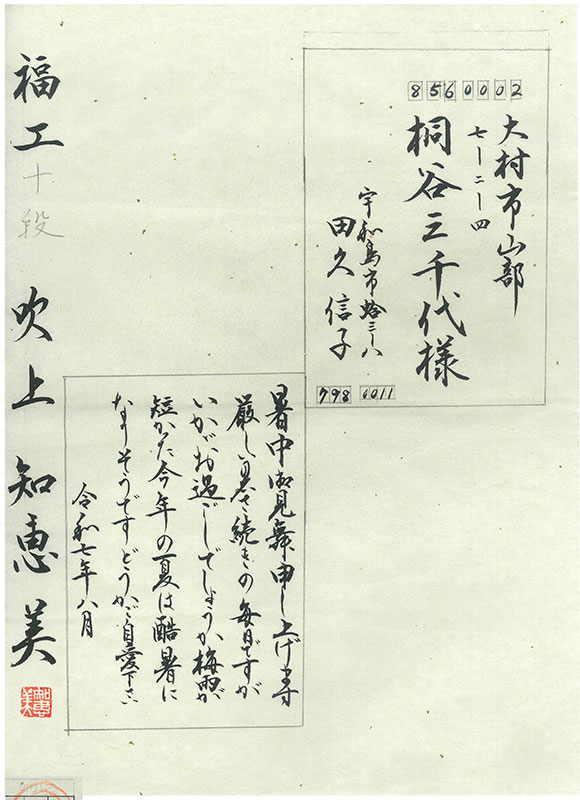 8560002
大村市山部
七ー二ー四
桐谷三千代様
宇和島市拾三ノ八
田久信子
798 0011
暑中御見舞申し上げます
厳しい暑さ続きの毎日ですが
いかがお過ごしでしょうか梅雨が
短かった今年の夏は酷暑に
なりそうですどうかご自愛下さい
令和七年八月
福工
十段
吹上知恵美